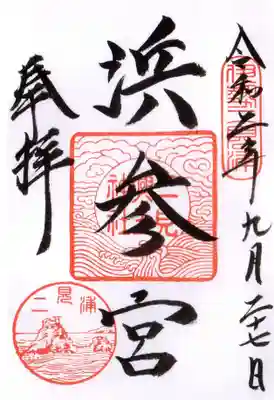 令和二年九月二十七日
浜参宮
奉拝
二見浦